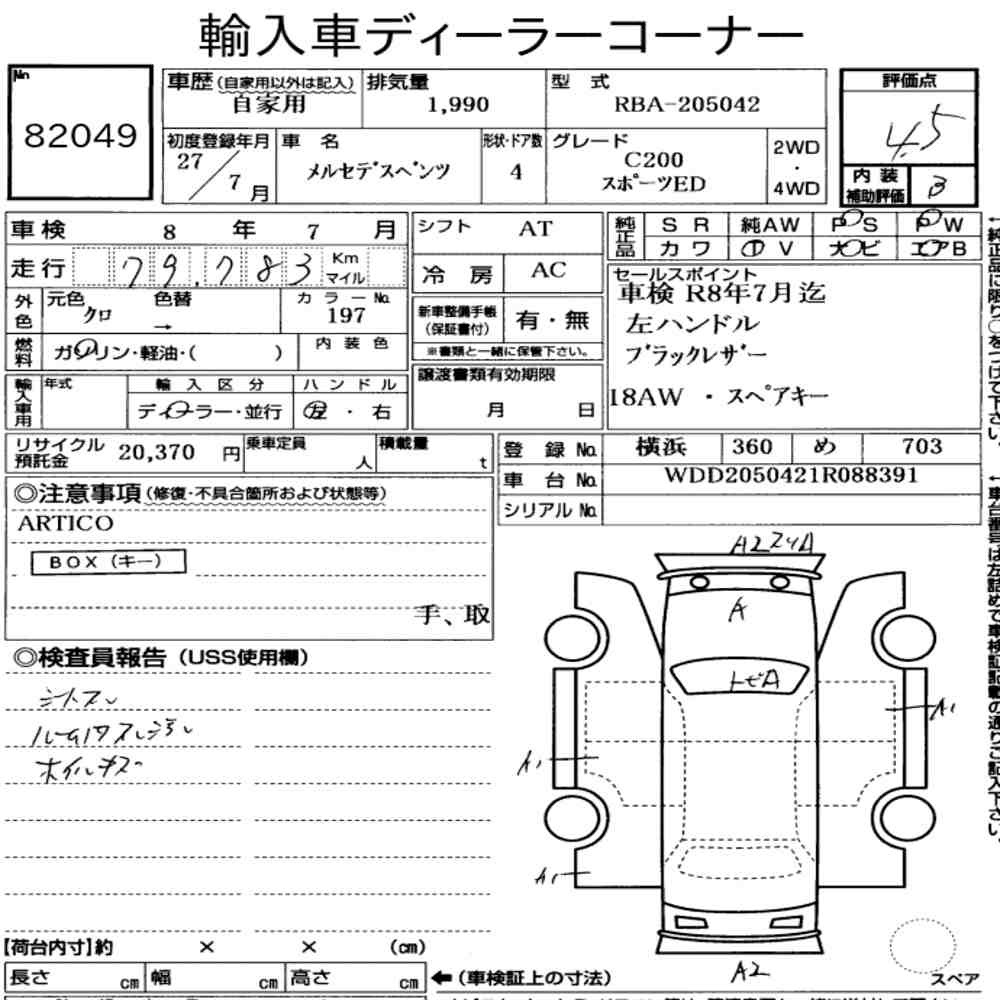 輸入車ディーラーコーナー
No.
82049
車歴(自家用以外は記入)
自家用
排気量
1,990
型 式
RBA-205042
評価点
4.5
内装
補助評価
B
初度登録年月
27/7月
車 名
メルセデスベンツ
形状・ドア数
4
グレード
C200
スポーツED
2WD
・
4WD
車検 8 年 7 月
走行 79,783 Km
マイル
外色
元色
クロ
色替
→
カラーNo.
197
燃料
ガソリン・軽油・( )
内装色
輸入車用
年式
輸入区分
ディーラー・並行
ハンドル
左・右
シフト AT
冷房 AC
新車整備手帳
(保証書付)
有・無
※書類と一緒に保管下さい。
譲渡書類有効期限
月 日
純正品
SR 純AW PS PW
カワ TV ナビ エアB
セールスポイント
車検 R8年7月迄
左ハンドル
ブラックレザー
18AW ・スペアキー
←純正品に限り○をつけて下さい。
リサイクル
預託金
20,370 円
乗車定員
人
積載量
t
登録No. 横浜 360 め 703
車台No. WDD2050421R088391
シリアルNo.
←車台番号は左詰めで車検証記載の通りご記入下さい。
◎注意事項(修復・不具合箇所および状態等)
ARTICO
BOX(キー)
手、取
◎検査員報告(USS使用欄)
シートスレ
ルーム内スレ汚レ
ホイルキズ
A
トビA
A1
A1
A1
A2
スペア
【荷台内寸】約 × × (cm)
長さ cm 幅 cm 高さ cm
←(車検証上の寸法)